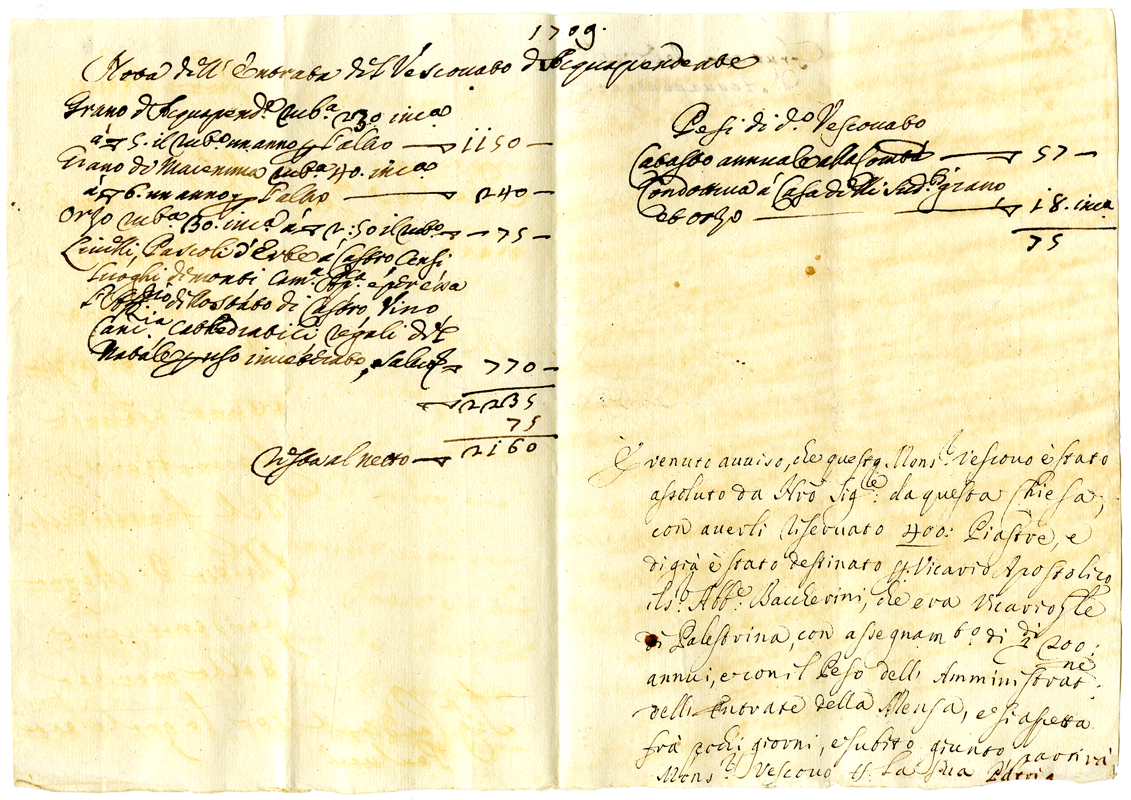 1709.
Nota dell' Entrata del Vescovato d'Acquapendente
Grano d'Acquapend.e rub.a 230. inc.a
à 5. il rub.o un anno p l'altro 1150 —
Grano di Maremma rub.a 40. inc.a
à 6. un anno p l'altro 240 —
Orzo rub.a 30. inc.a à 2:50 il rub.o — 75 —
Livelli, Pascoli d'Erbe à Castro Censi
Luoghi di monti
di Castro, Vino
Canc.ria Cathedratici regali del
Natale, 770 —
2235
75
Resta al netto — 2160
Pesi di d.o Vescovato
Catasto annuale alla 57 —
à Casa delli grano
et orzo 18. inc.a
75
È venuto auuiso, che questo Mons.r Vescouo è stato
assoluto da Nrõ Sig.re da questa Chiesa,
con auerli riseruato 400: Piastre, e
di già è stato destinato p. Vicario Apostolico
Abb.e Baccherini, che era Vicario
di Palestrina, con assegnam.to di 200:
annui, e con il Peso delli Amministrat.ne
delli Entrate della Mensa, e si aspetta
frà pochi giorni, e subito giunto partirà
Mons.r Vescouo p. la sua Patria